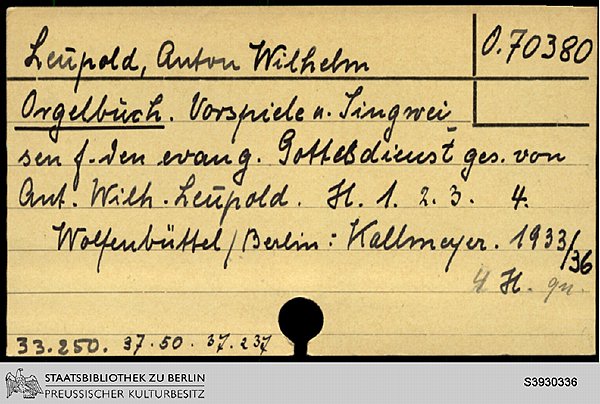 Leupold, Anton Wilhelm
O.70380
Orgelbuch. Vorspiele u. Singwei-
sen f. den evang. Gottesdienst ges. von
Ant. Wilh. Leupold. H. 1. 2. 3. 4.
Wolfenbüttel/Berlin: Kallmeyer. 1933/36
4 H. qu.
33.250. 37.50. 37.237
STAATSBIBLIOTHEK ZU BERLIN
PREUSSISCHER KULTURBESITZ
S3930336